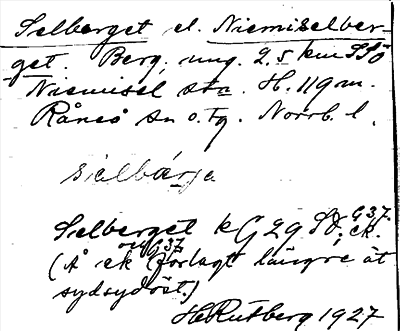 Selberget el. Niemiselber-
get. Berg, ung. 2.5 km SSÖ
Niemisel stn. H. 119 m.
Råneå sn o. tg. Norrb. l.
sielbárja
Selberget k G 29 SÖ; G 37.
ek.
och G 37
(Å ek förlagt längre åt
sydsydöst.)
H Rutberg 1927